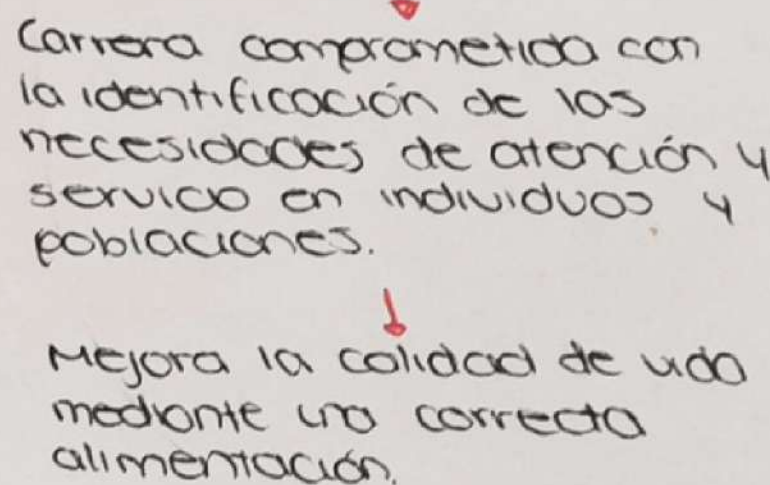 Carrera comprometida con
la identificación de las
necesidades de atención y
servicio en individuos y
poblaciones.
Mejora la calidad de vida
mediante una correcta
alimentación.